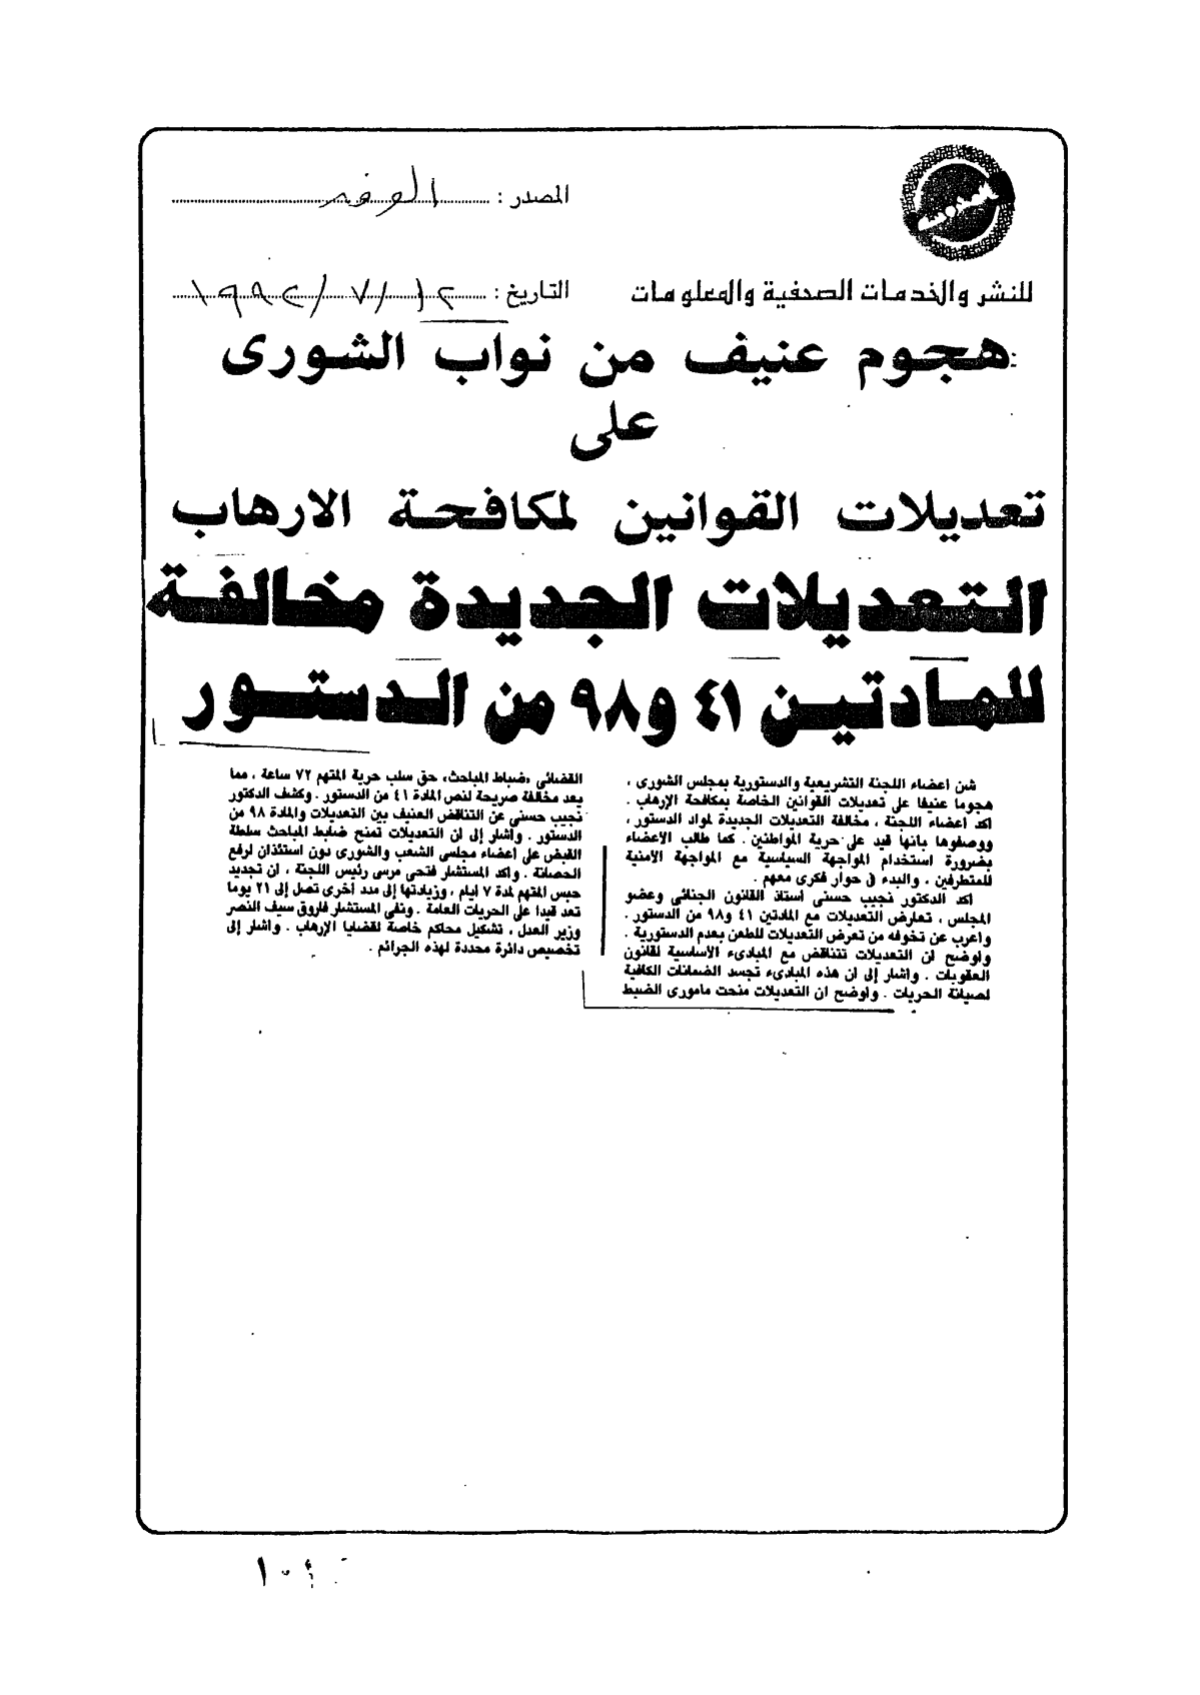 المصدر : الوفد
للنشر والخدمات الصحفية والمعلومات
التاريخ : ١٢/٧/١٩٩٢
هجوم عنيف من نواب الشورى
على
تعديلات القوانين لمكافحة الارهاب
التعديلات الجديدة مخالفة
للمادتين ٤١ و٩٨ من الدستور
شن اعضاء اللجنة التشريعية والدستورية بمجلس الشورى ،
هجوما عنيفا على تعديلات القوانين الخاصة بمكافحة الإرهاب .
اكد اعضاء اللجنة ، مخالفة التعديلات الجديدة لمواد الدستور ،
ووصفوها بانها قيد على حرية المواطنين . كما طالب الأعضاء
بضرورة استخدام المواجهة السياسية مع المواجهة الأمنية
للمتطرفين ، والبدء فى حوار فكرى معهم .
اكد الدكتور نجيب حسنى أستاذ القانون الجنائى وعضو
المجلس ، تعارض التعديلات مع المادتين ٤١ و٩٨ من الدستور .
وأعرب عن تخوفه من تعرض التعديلات للطعن بعدم الدستورية .
واوضح ان التعديلات تتناقض مع المبادىء الأساسية لقانون
العقوبات . واشار إلى ان هذه المبادىء تجسد الضمانات الكافية
لصيانة الحريات . واوضح ان التعديلات منحت مامورى الضبط
القضائى «ضباط المباحث» حق سلب حرية المتهم ٧٢ ساعة ، مما
يعد مخالفة صريحة لنص المادة ٤١ من الدستور . وكشف الدكتور
نجيب حسنى عن التناقض العنيف بين التعديلات والمادة ٩٨ من
الدستور . واشار إلى ان التعديلات تمنح ضابط المباحث سلطة
القبض على اعضاء مجلسى الشعب والشورى دون استئذان لرفع
الحصانة . واكد المستشار فتحى مرسى رئيس اللجنة ، ان تجديد
حبس المتهم لمدة ٧ ايام ، وزيادتها إلى مدد أخرى تصل إلى ٢١ يوما
تعد قيدا على الحريات العامة . ونفى المستشار فاروق سيف النصر
وزير العدل ، تشكيل محاكم خاصة لقضايا الإرهاب . واشار إلى
تخصيص دائرة محددة لهذه الجرائم .